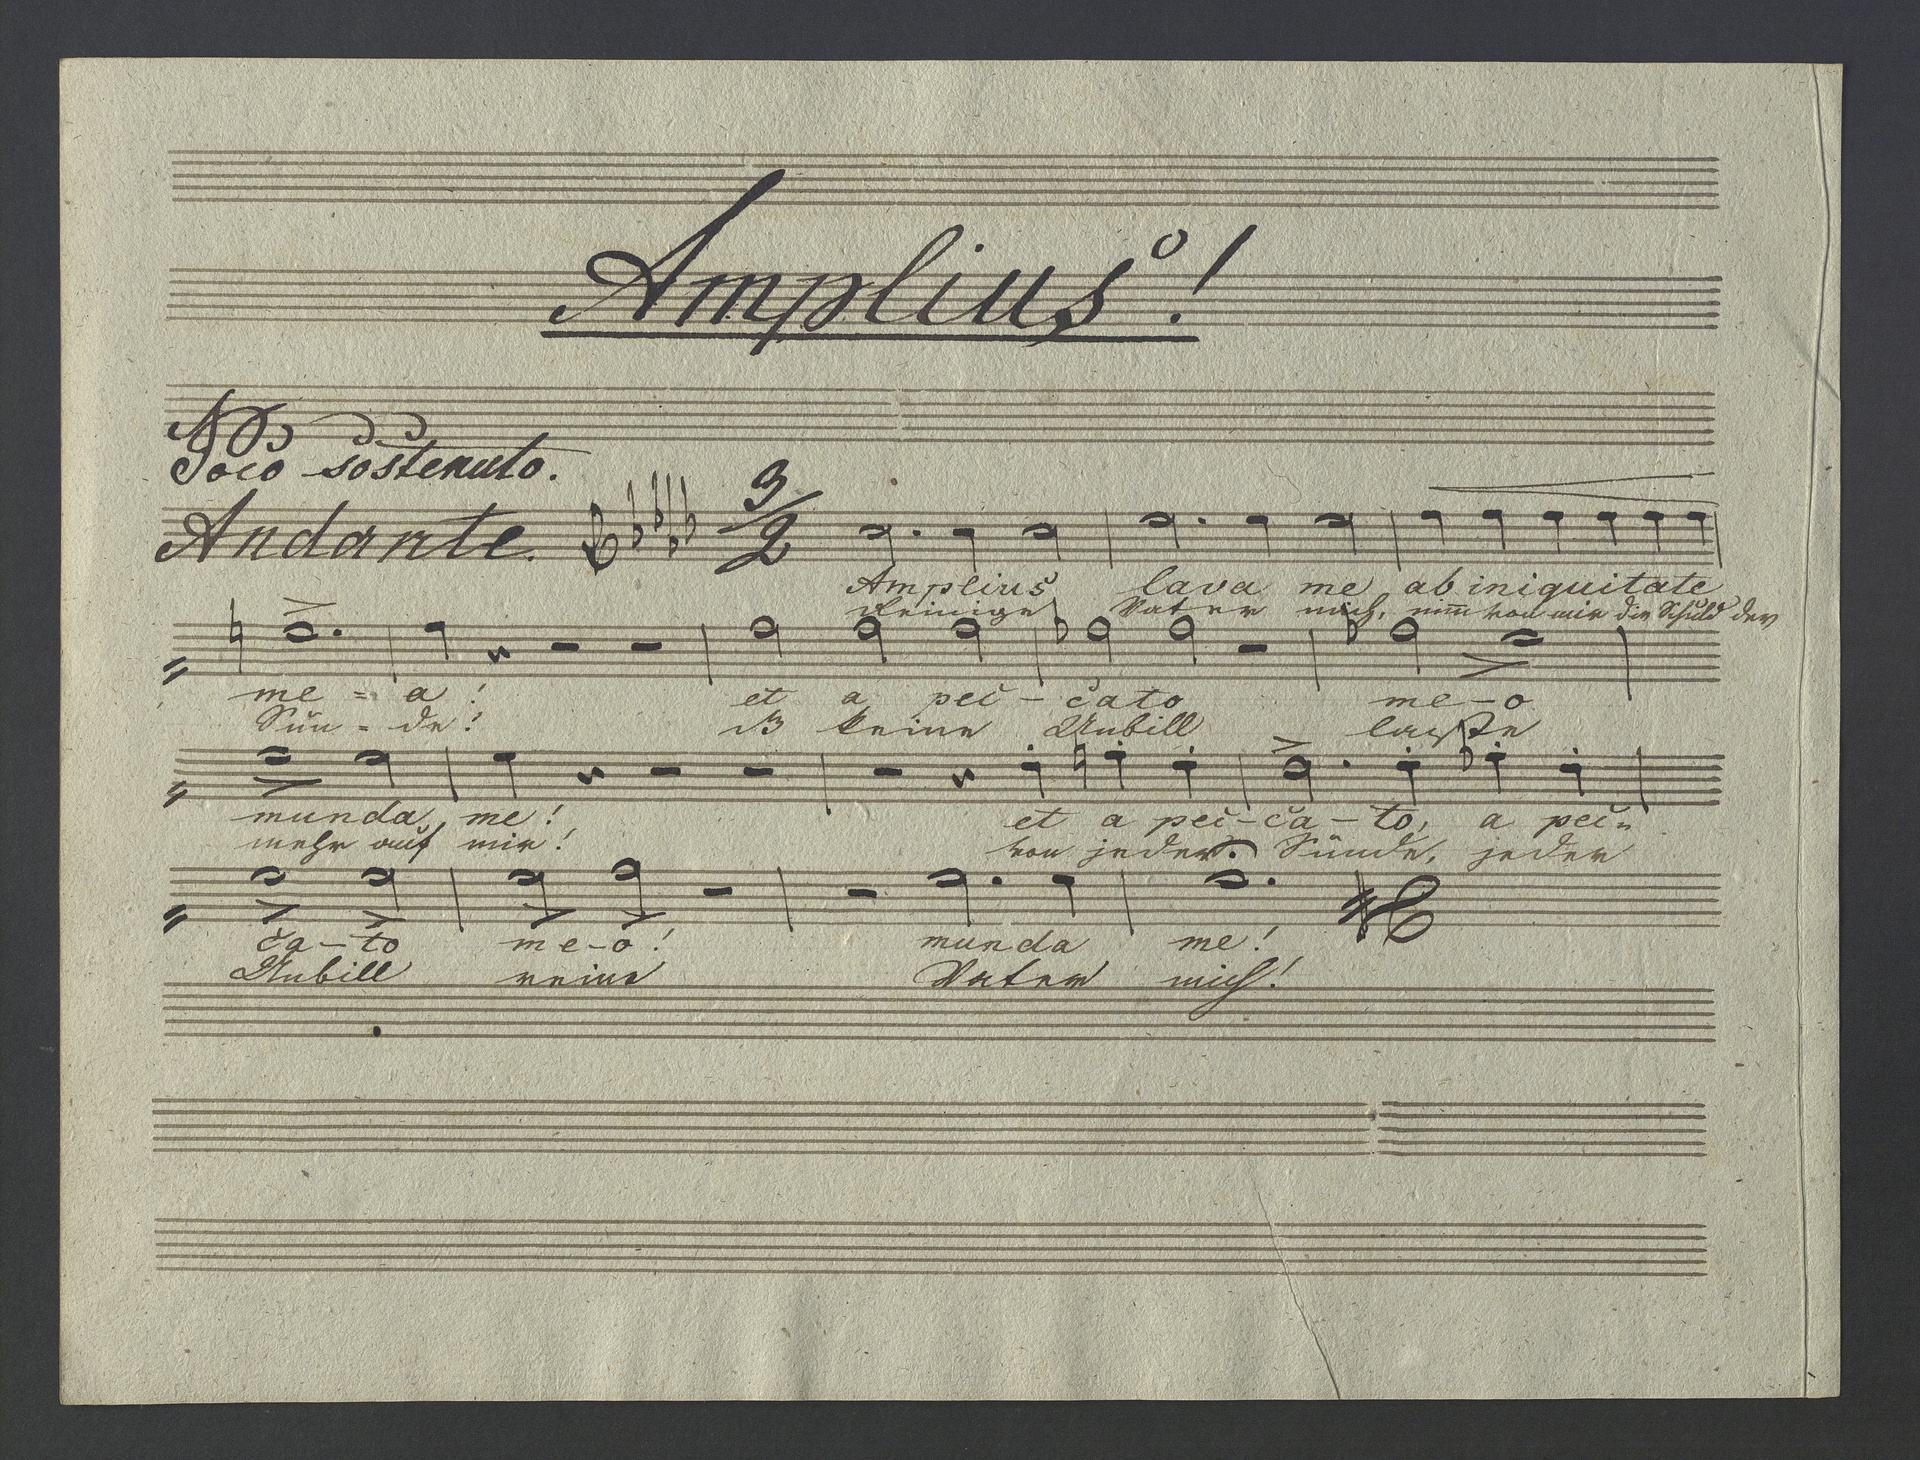 Amplius!
Poco sostenuto.
Andante. 3/2
Amplius lava me ab iniquitate
Reinige Vater mich, nim̅ von mir die Schuld der
me = a! et a pec̆ - c̆ato me - o
Sün = de! keine Unbill laste
munda me! et a pec̆ - c̆a - to, a pec̆ =
mehr auf mir! von jeder Sünde, jeder
c̆a - to me - o! munda me!
Unbill reine Vater mich!